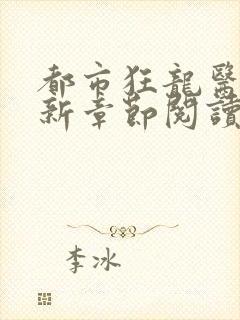 都市狂龍醫
新章節閱讀
李冰